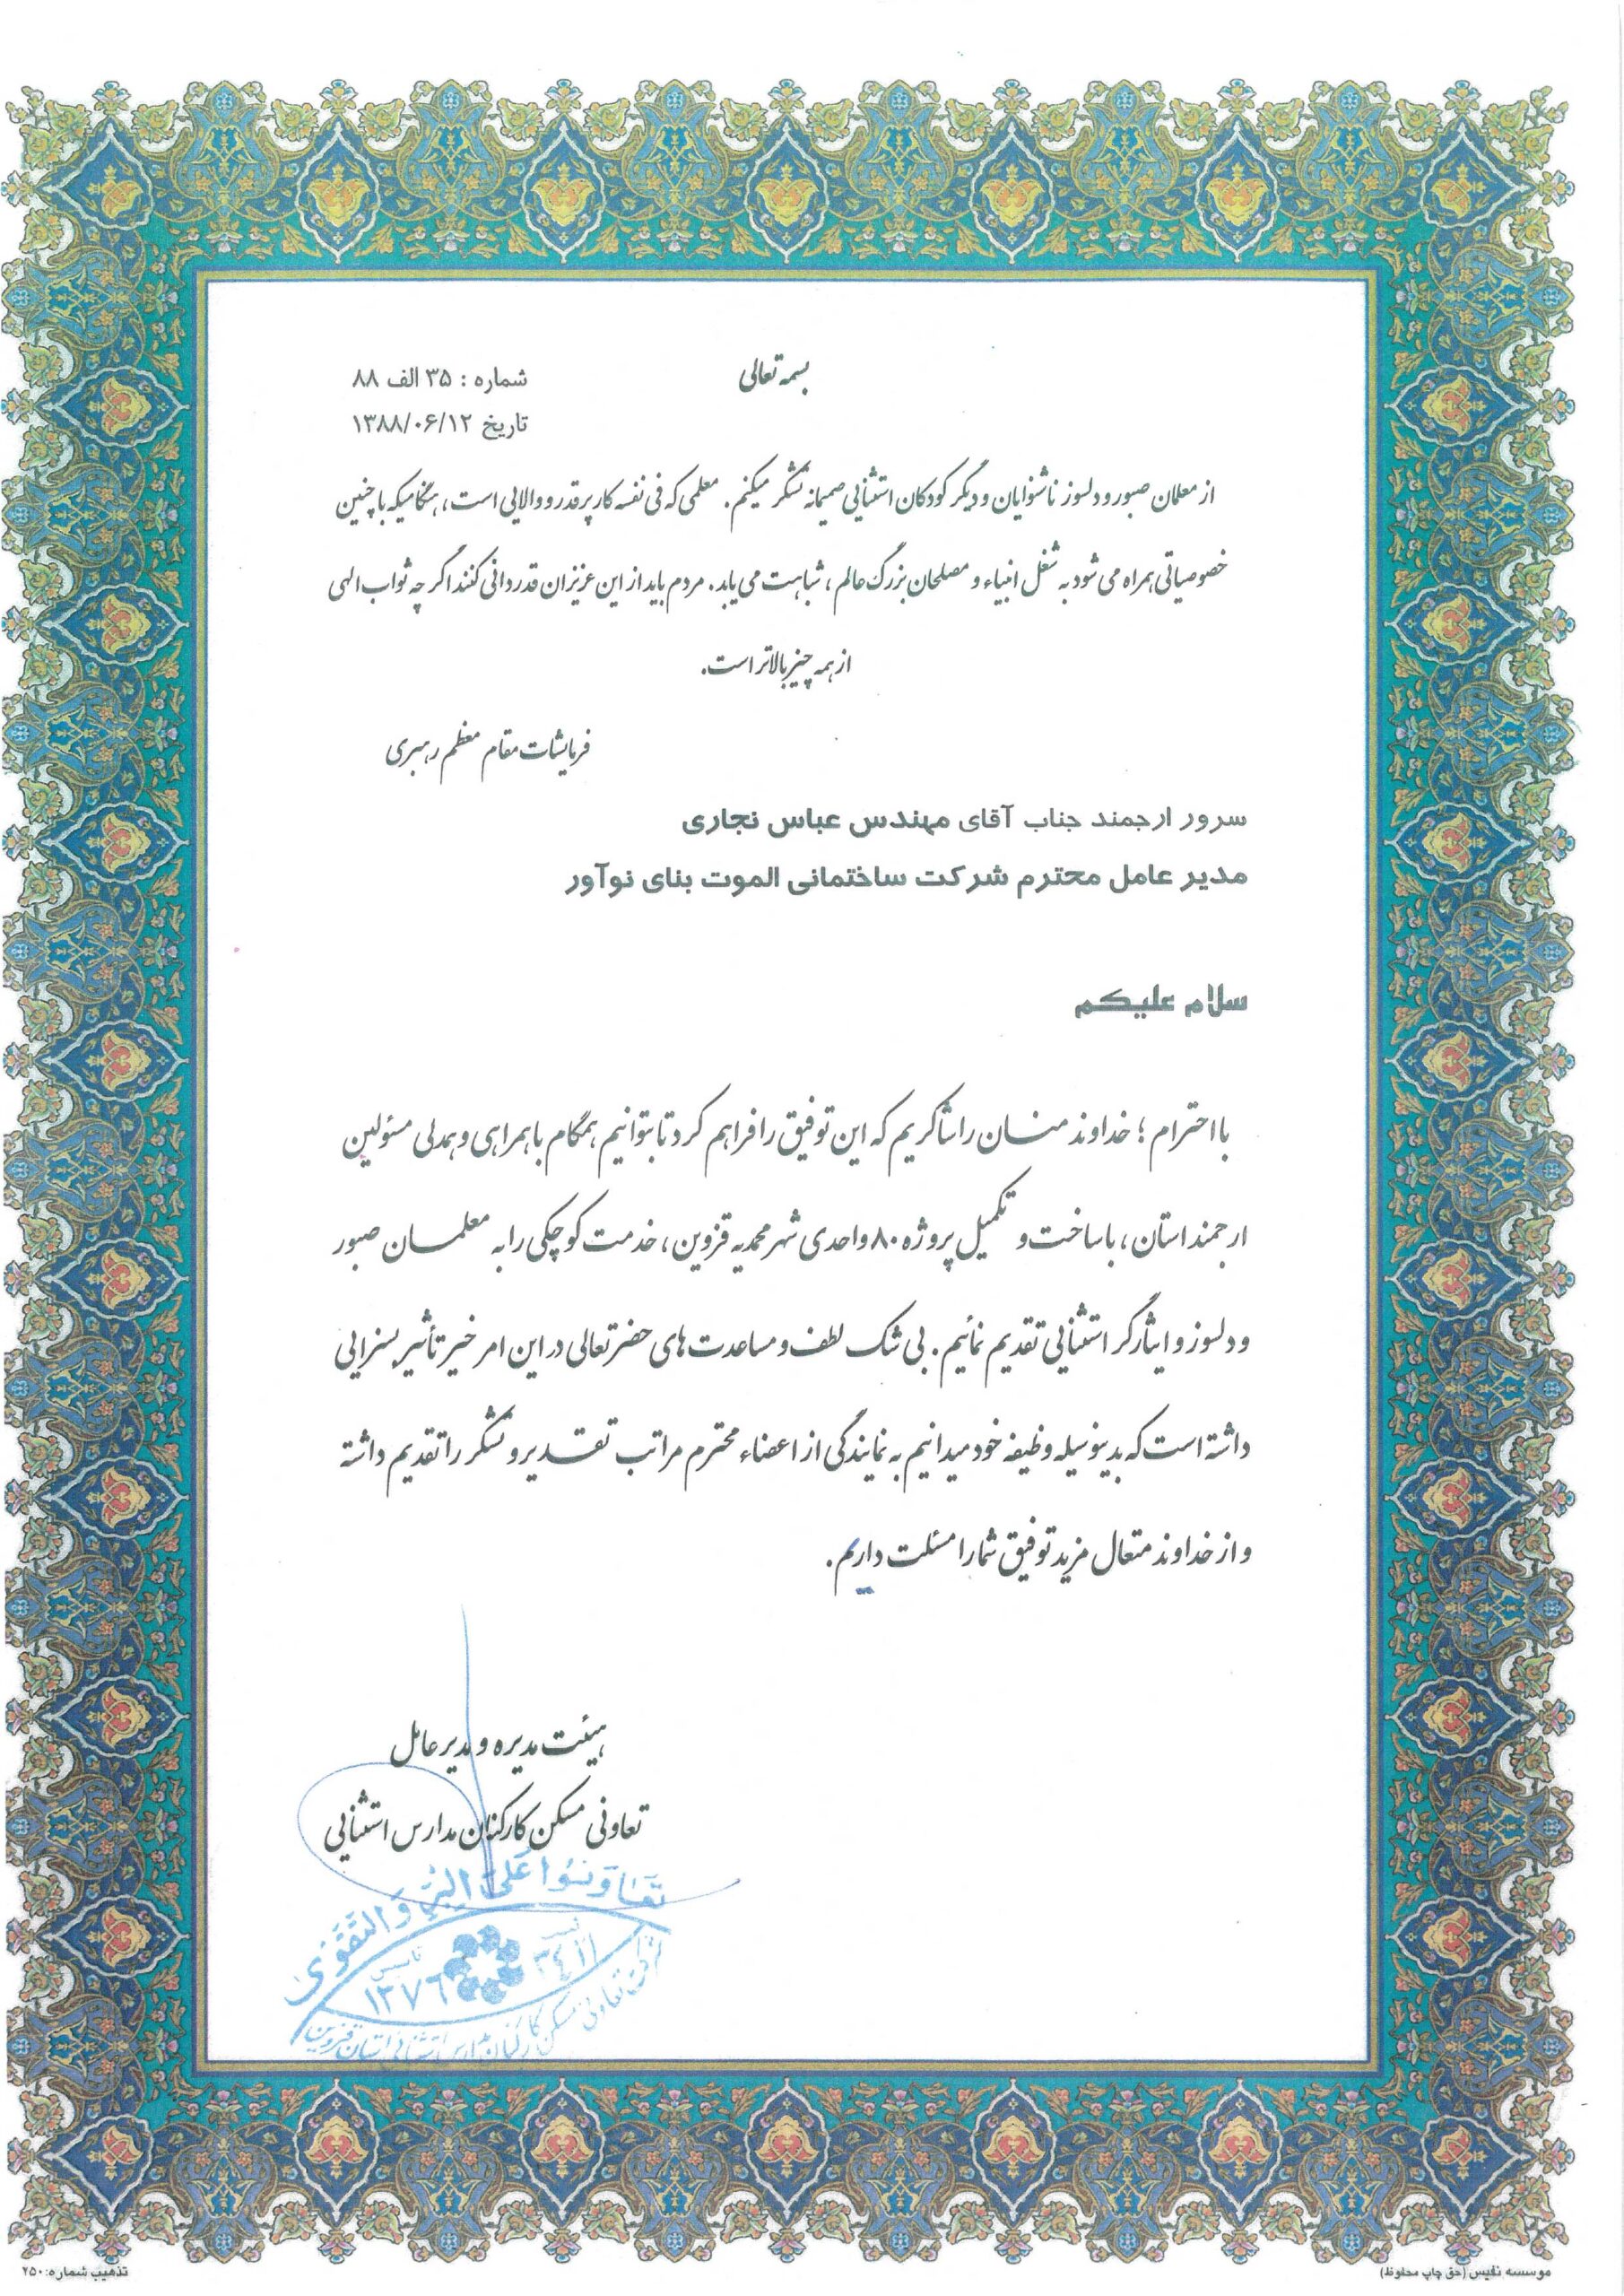 بسمه تعالی
شماره : ۳۵ الف ۸۸
تاریخ ۱۳۸۸/۰۶/۱۲
از معلمان صبور و دلسوز ناشنوایان و دیگر کودکان استثنایی صمیمانه تشکر میکنم. معلمی که فی نفسه کار پر قدر و والایی است، هنگامیکه با چنین
خصوصیاتی همراه می شود به شغل انبیاء و مصلحان بزرگ عالم، شباهت می یابد. مردم باید از این عزیزان قدردانی کنند اگر چه ثواب الهی
از همه چیز بالاتر است.
فرمایشات مقام معظم رهبری
سرور ارجمند جناب آقای مهندس عباس نجاری
مدیر عامل محترم شرکت ساختمانی الموت بنای نوآور
سلام علیکم
با احترام ؛ خداوند منان را شاکریم که این توفیق را فراهم کرد تا بتوانیم همگام با همراهی و همدلی مسئولین
ارجمند استان، با ساخت و تکمیل پروژه ۸۰ واحدی شهر محمدیه قزوین، خدمت کوچکی را به معلمان صبور
و دلسوز و ایثارگر استثنایی تقدیم نمائیم. بی شک لطف و مساعدت های حضرتعالی در این امر خیر تأثیر بسزایی
داشته است که بدینوسیله وظیفه خود میدانیم به نمایندگی از اعضاء محترم مراتب تقدیر و تشکر را تقدیم داشته
و از خداوند متعال مزید توفیق شما را مسئلت داریم.
هیئت مدیره و مدیر عامل
تعاونی مسکن کارکنان مدارس استثنایی
تَعاوَنوُا عَلَی البِرِّ وَ التَّقوی
تاسیس ۱۳۷۶
ثبت ۳۴۱۱
شرکت تعاونی مسکن کارکنان مدارس استثنائی استان قزوین
تذهیب شماره: ۲۵۰
موسسه نفیس (حق چاپ محفوظ)